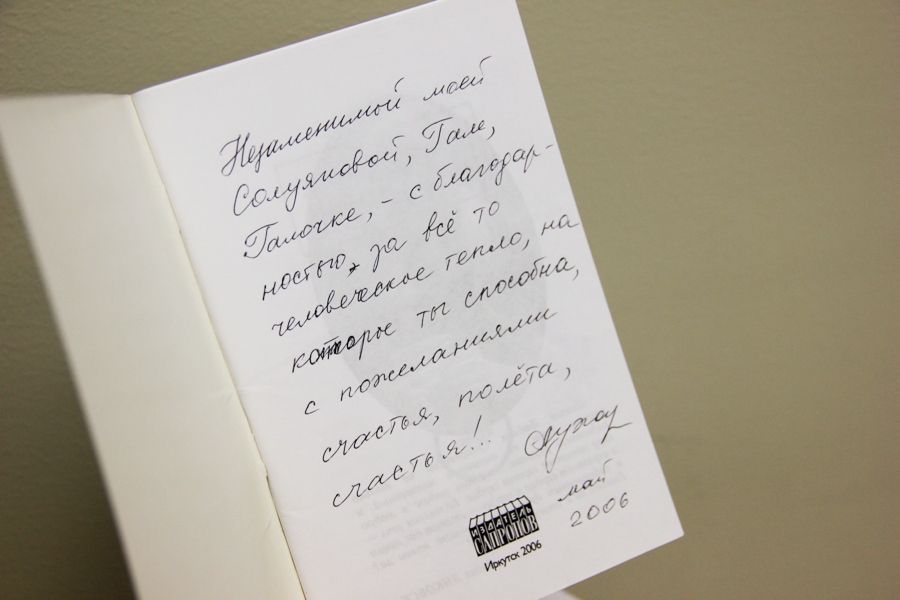 Незаменимой моей
Солуяновой, Гале,
Галочке, – с благодар-
ностью, за всё то
человеческое тепло, на
которое ты способна,
с пожеланиями
счастья, полёта,
счастья!..
май
2006
ИЗДАТЕЛЬ
САПРОНОВ
Иркутск 2006